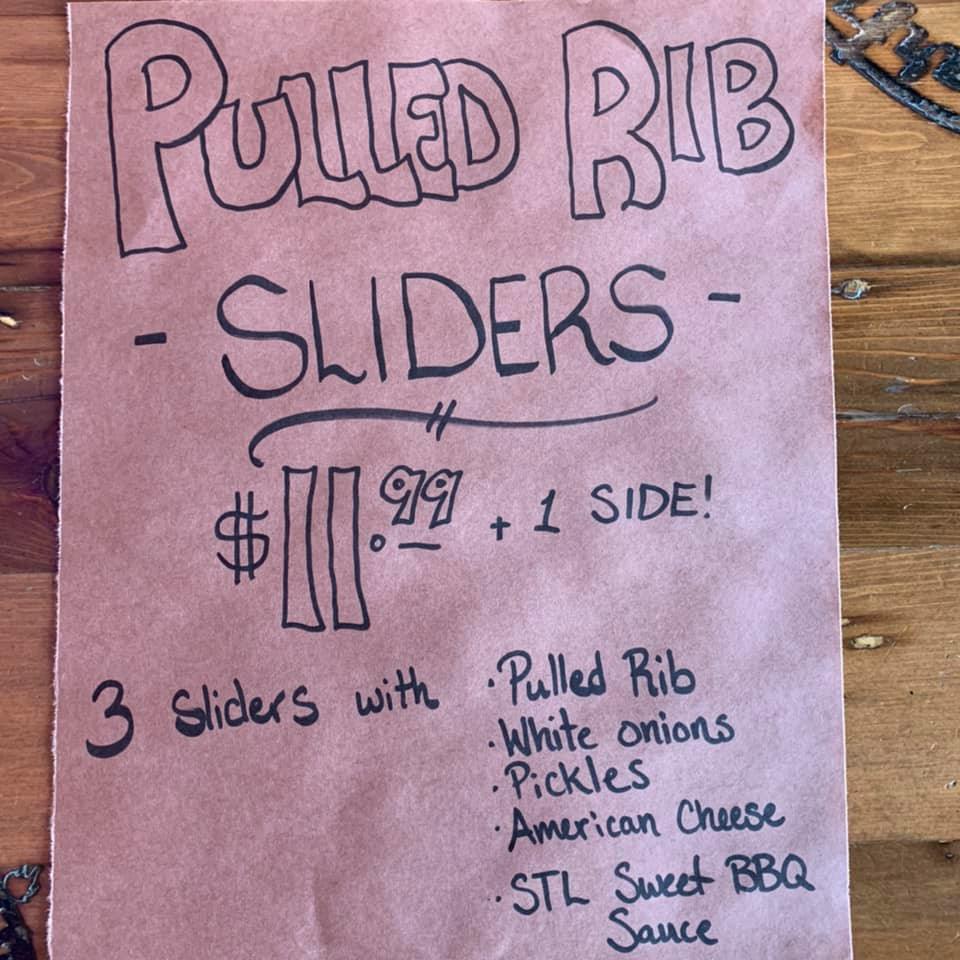 PULLED RIB
- SLIDERS -
$11.99 + 1 SIDE!
3 Sliders with · Pulled Rib
· White onions
· Pickles
· American Cheese
· STL Sweet BBQ
Sauce